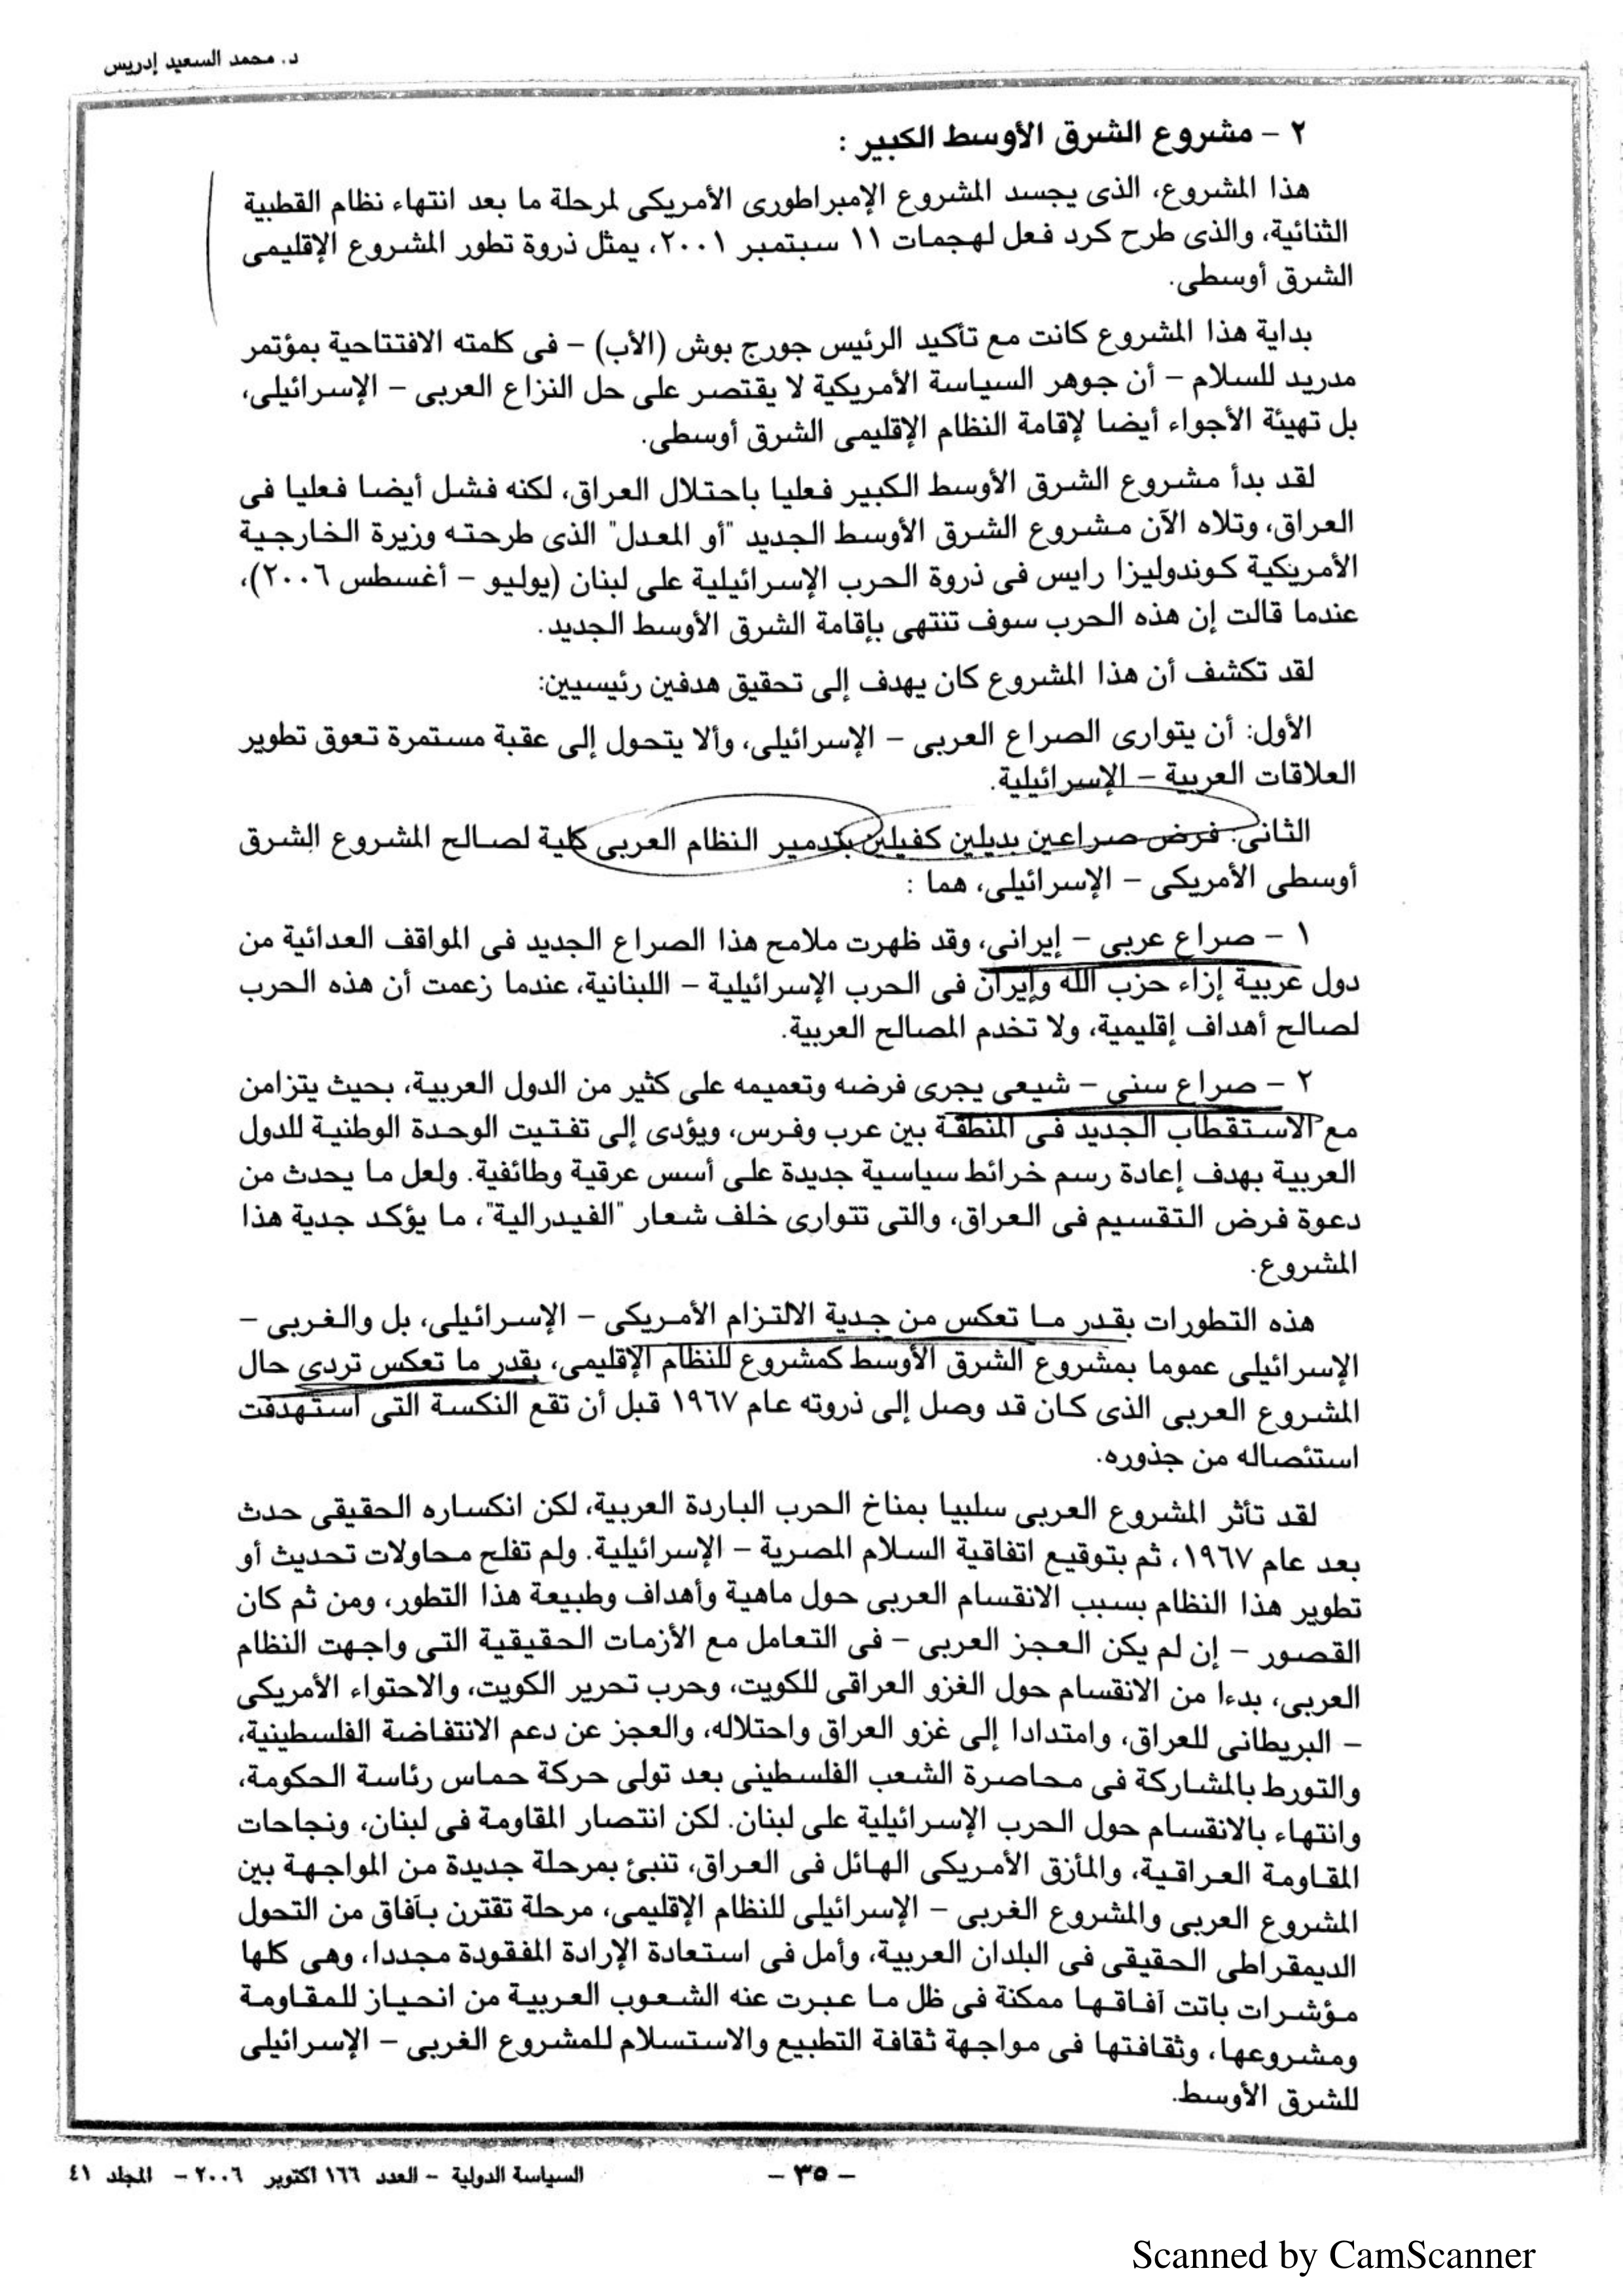 د. محمد السعيد إدريس
٢ – مشروع الشرق الأوسط الكبير :
هذا المشروع، الذى يجسد المشروع الإمبراطورى الأمريكى لمرحلة ما بعد انتهاء نظام القطبية
الثنائية، والذى طرح كرد فعل لهجمات ١١ سبتمبر ٢٠٠١، يمثل ذروة تطور المشروع الإقليمى
الشرق أوسطى.
بداية هذا المشروع كانت مع تأكيد الرئيس جورج بوش (الأب) – فى كلمته الافتتاحية بمؤتمر
مدريد للسلام – أن جوهر السياسة الأمريكية لا يقتصر على حل النزاع العربى – الإسرائيلى،
بل تهيئة الأجواء أيضا لإقامة النظام الإقليمى الشرق أوسطى.
لقد بدأ مشروع الشرق الأوسط الكبير فعليا باحتلال العراق، لكنه فشل أيضا فعليا فى
العراق، وتلاه الآن مشروع الشرق الأوسط الجديد "أو المعدل" الذى طرحته وزيرة الخارجية
الأمريكية كوندوليزا رايس فى ذروة الحرب الإسرائيلية على لبنان (يوليو – أغسطس ٢٠٠٦)،
عندما قالت إن هذه الحرب سوف تنتهى بإقامة الشرق الأوسط الجديد.
لقد تكشف أن هذا المشروع كان يهدف إلى تحقيق هدفين رئيسيين:
الأول: أن يتوارى الصراع العربى – الإسرائيلى، وألا يتحول إلى عقبة مستمرة تعوق تطوير
العلاقات العربية – الإسرائيلية.
الثانى: فرض صراعين بديلين كفيلين بتدمير النظام العربى كلية لصالح المشروع الشرق
أوسطى الأمريكى – الإسرائيلى، هما :
١ – صراع عربى – إيرانى، وقد ظهرت ملامح هذا الصراع الجديد فى المواقف العدائية من
دول عربية إزاء حزب الله وإيران فى الحرب الإسرائيلية – اللبنانية، عندما زعمت أن هذه الحرب
لصالح أهداف إقليمية، ولا تخدم المصالح العربية.
٢ – صراع سنى – شيعى يجرى فرضه وتعميمه على كثير من الدول العربية، بحيث يتزامن
مع الاستقطاب الجديد فى المنطقة بين عرب وفرس، ويؤدى إلى تفتيت الوحدة الوطنية للدول
العربية بهدف إعادة رسم خرائط سياسية جديدة على أسس عرقية وطائفية. ولعل ما يحدث من
دعوة فرض التقسيم فى العراق، والتى تتوارى خلف شعار "الفيدرالية"، ما يؤكد جدية هذا
المشروع.
هذه التطورات بقدر ما تعكس من جدية الالتزام الأمريكى – الإسرائيلى، بل والغربى –
الإسرائيلى عموما بمشروع الشرق الأوسط كمشروع للنظام الإقليمى، بقدر ما تعكس تردى حال
المشروع العربى الذى كان قد وصل إلى ذروته عام ١٩٦٧ قبل أن تقع النكسة التى استهدفت
استئصاله من جذوره.
لقد تأثر المشروع العربى سلبيا بمناخ الحرب الباردة العربية، لكن انكساره الحقيقى حدث
بعد عام ١٩٦٧، ثم بتوقيع اتفاقية السلام المصرية – الإسرائيلية. ولم تفلح محاولات تحديث أو
تطوير هذا النظام بسبب الانقسام العربى حول ماهية وأهداف وطبيعة هذا التطور، ومن ثم كان
القصور – إن لم يكن العجز العربى – فى التعامل مع الأزمات الحقيقية التى واجهت النظام
العربى، بدءا من الانقسام حول الغزو العراقى للكويت، وحرب تحرير الكويت، والاحتواء الأمريكى
– البريطانى للعراق، وامتدادا إلى غزو العراق واحتلاله، والعجز عن دعم الانتفاضة الفلسطينية،
والتورط بالمشاركة فى محاصرة الشعب الفلسطينى بعد تولى حركة حماس رئاسة الحكومة،
وانتهاء بالانقسام حول الحرب الإسرائيلية على لبنان. لكن انتصار المقاومة فى لبنان، ونجاحات
المقاومة العراقية، والمأزق الأمريكى الهائل فى العراق، تنبئ بمرحلة جديدة من المواجهة بين
المشروع العربى والمشروع الغربى – الإسرائيلى للنظام الإقليمى، مرحلة تقترن بآفاق من التحول
الديمقراطى الحقيقى فى البلدان العربية، وأمل فى استعادة الإرادة المفقودة مجددا، وهى كلها
مؤشرات باتت آفاقها ممكنة فى ظل ما عبرت عنه الشعوب العربية من انحياز للمقاومة
ومشروعها، وثقافتها فى مواجهة ثقافة التطبيع والاستسلام للمشروع الغربى – الإسرائيلى
للشرق الأوسط.
السياسة الدولية – العدد ١٦٦ اكتوبر ٢٠٠٦ – المجلد ٤١
– ٣٥ –
Scanned by CamScanner